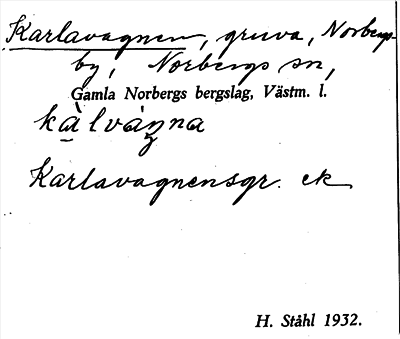 Karlavagnen, gruva, Norbergs-
by, Norbergs sn,
Gamla Norbergs bergslag, Västm. l.
Karlavagnensgr. ek
H. Ståhl 1932.